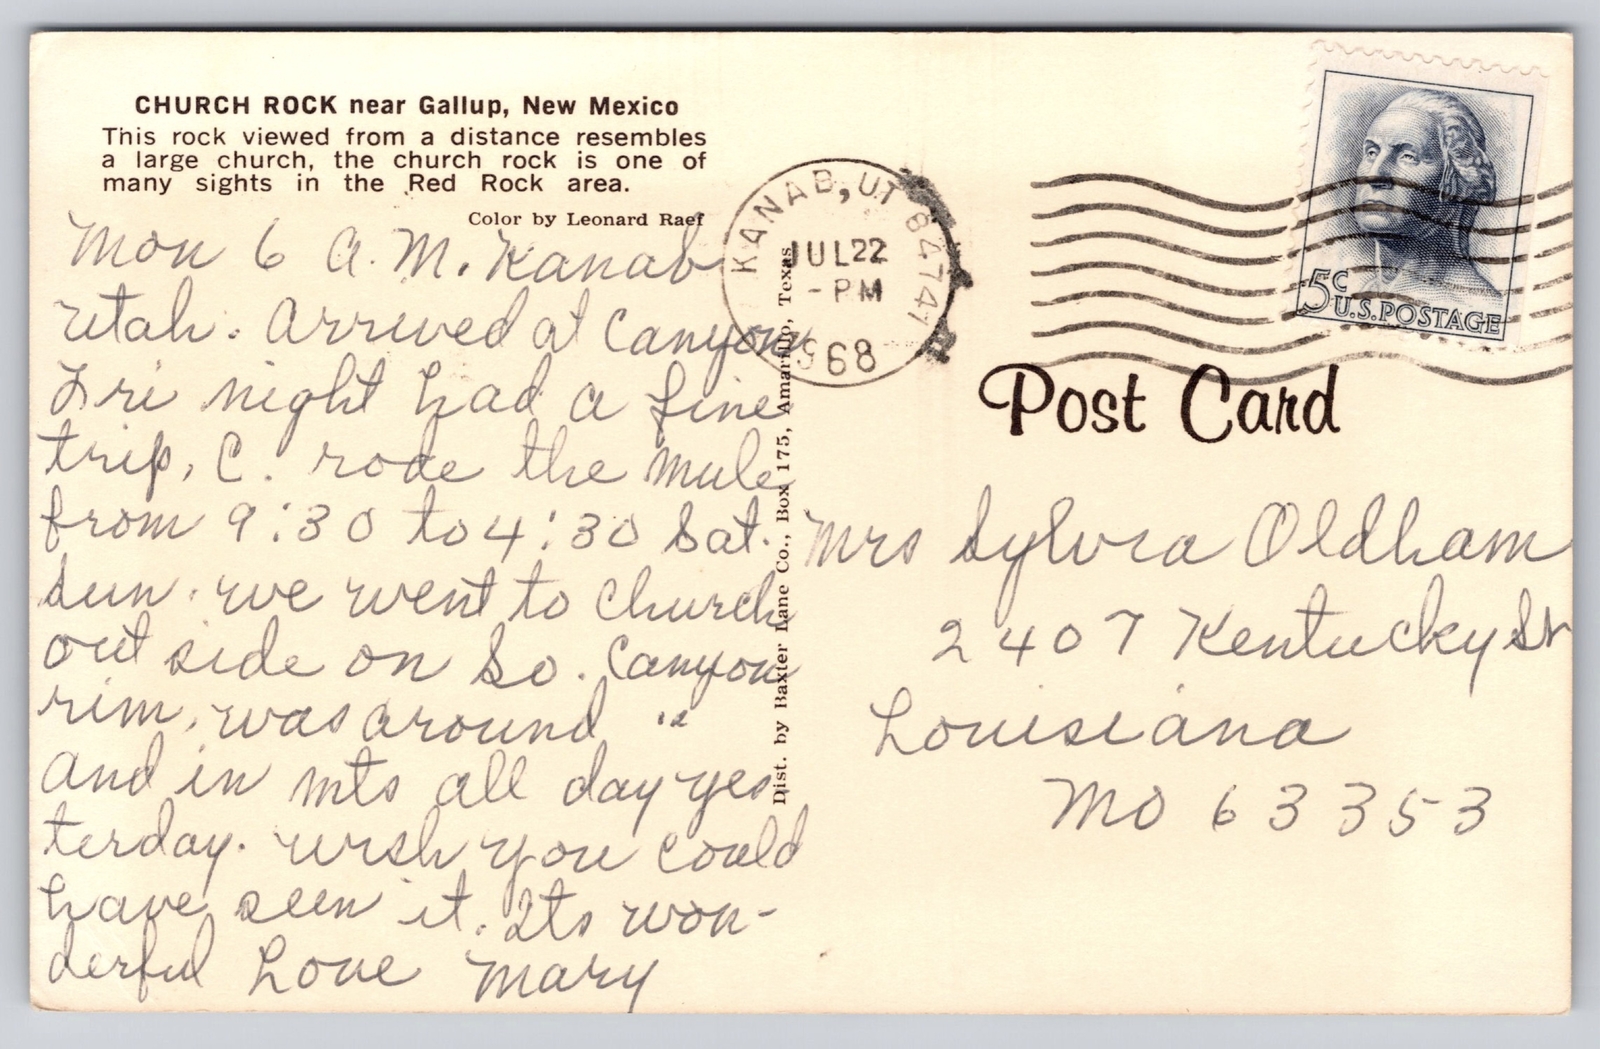 CHURCH ROCK near Gallup, New Mexico
This rock viewed from a distance resembles
a large church, the church rock is one of
many sights in the Red Rock area.
Color by Leonard Raef
Mon 6 A.M. Kanab
Utah. Arrived at Canyon
Fri night had a fine
trip, C. rode the mule
from 9:30 to 4:30 Sat.
Sun. we went to church
out side on So. Canyon
rim, was around "
and in mts all day yes
terday. wish you could
have seen it. Its won-
derful Love Mary
Dist. by Baxter Lane Co., Box 175, Amarillo, Texas
KANAB, UT 84741
JUL 22
-PM
1968
5c
U.S. POSTAGE
Post Card
Mrs Sylvia Oldham
2407 Kentucky St
Louisiana
Mo 63353